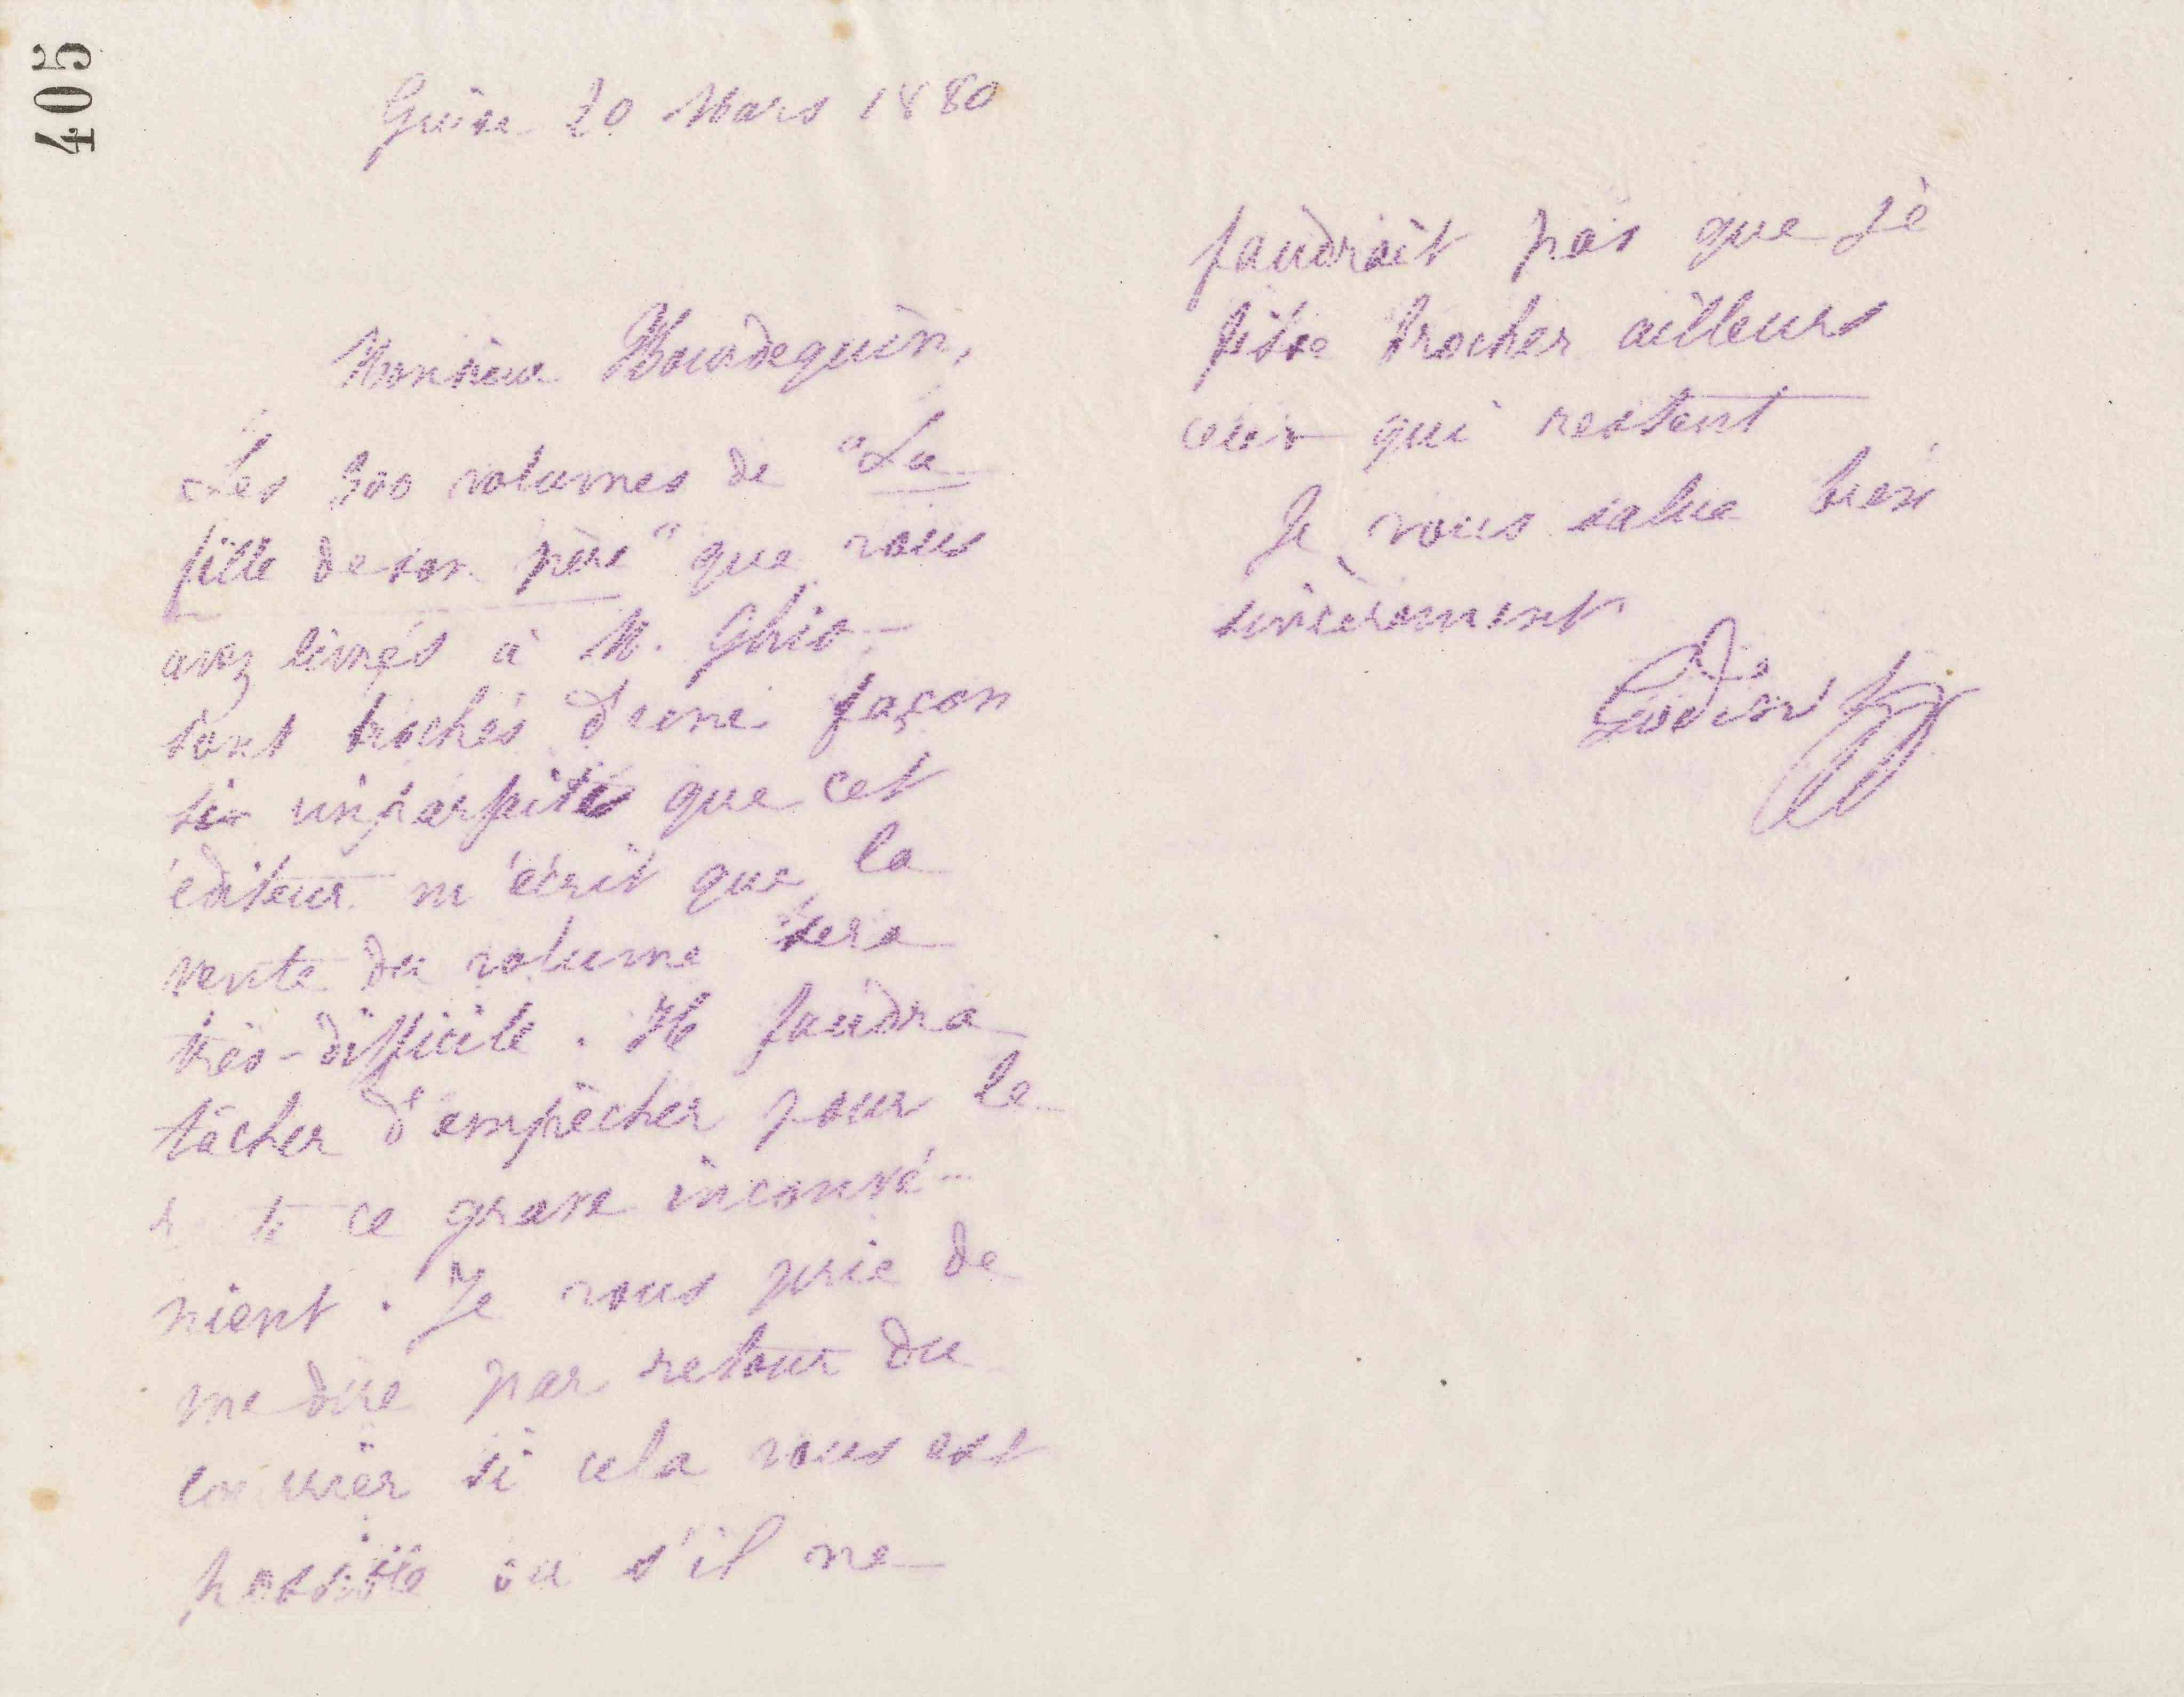 405
Guise 20 Mars 1880
Monsieur Bourdequin,
Les 300 volumes de "La
fille de son père" que vous
avez livrés à M. Ghio
sont brochés d'une façon
si imparfaite que cet
éditeur m'écrit que la
vente du volume sera
très-difficile. Il faudra
tâcher d'empêcher pour le
ce grave inconvé-
nient. Je vous prie de
me dire par retour du
courrier si cela vous est
possible ou s'il ne
faudrait pas que je
fisse brocher ailleurs
ceux qui restent
Je vous salue bien
sincèrement
Godin